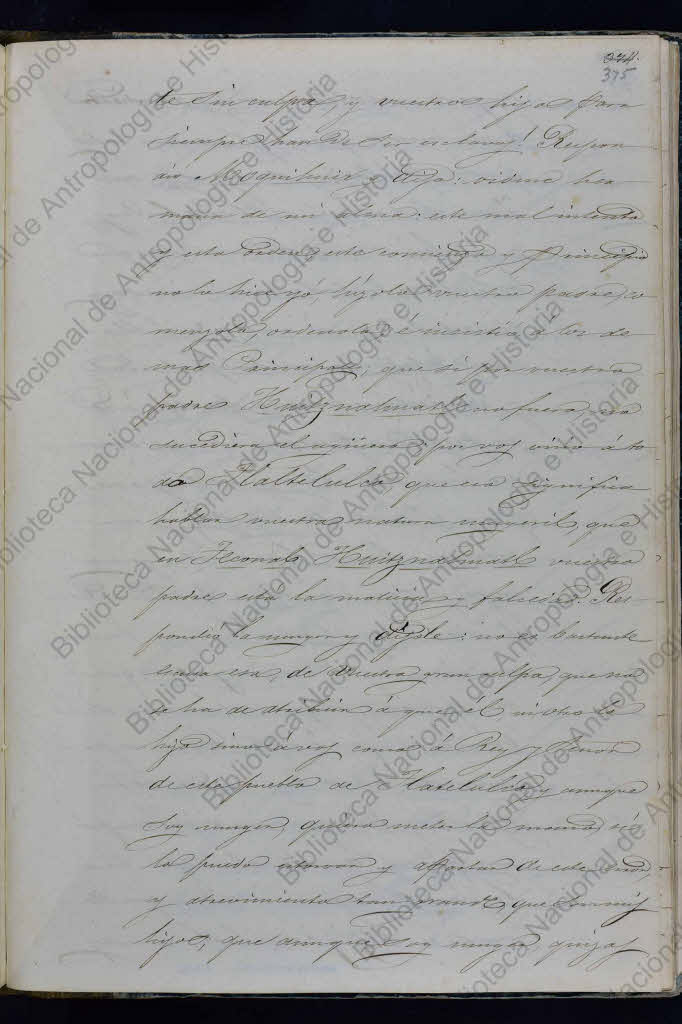 374.
375
te sin culpa, y vuestros hijos para
siempre han de ser esclavos! Respon
dió Moquihuix y dijo: vidme her
mana de mi alma: este mal intento
y esta orden, y este comienzo y principio
no lo hice yó, hízolo vuestro padre, co
menzólo, ordenólo, é insistió a los de
mas Principales, que si por vuestro
padre Huitznahuatl no fuera, no
sucediera el agüero: por vos vino á to
do Tlaltelulco que eso significa
hablar vuestra natura mugeril, que
en Teconal Huitznahuatl vuestro
padre está la malicia y falsía. Res
pondió la muger y díjole: no es bastante
escusa esa, de vuestra gran culpa, que no
se ha de atribuir á que él ni otro lo
hizo sino á vos como á Rey y Señor
de este pueblo de Tlatelulco y aunque
soy muger, quiero meter la mano, si
lo puedo estorvar y apartar de este error
y atrevimiento tan grande, que son mis
hijos, que aunque soy muger quizas
Biblioteca Nacional de Antropología e Historia